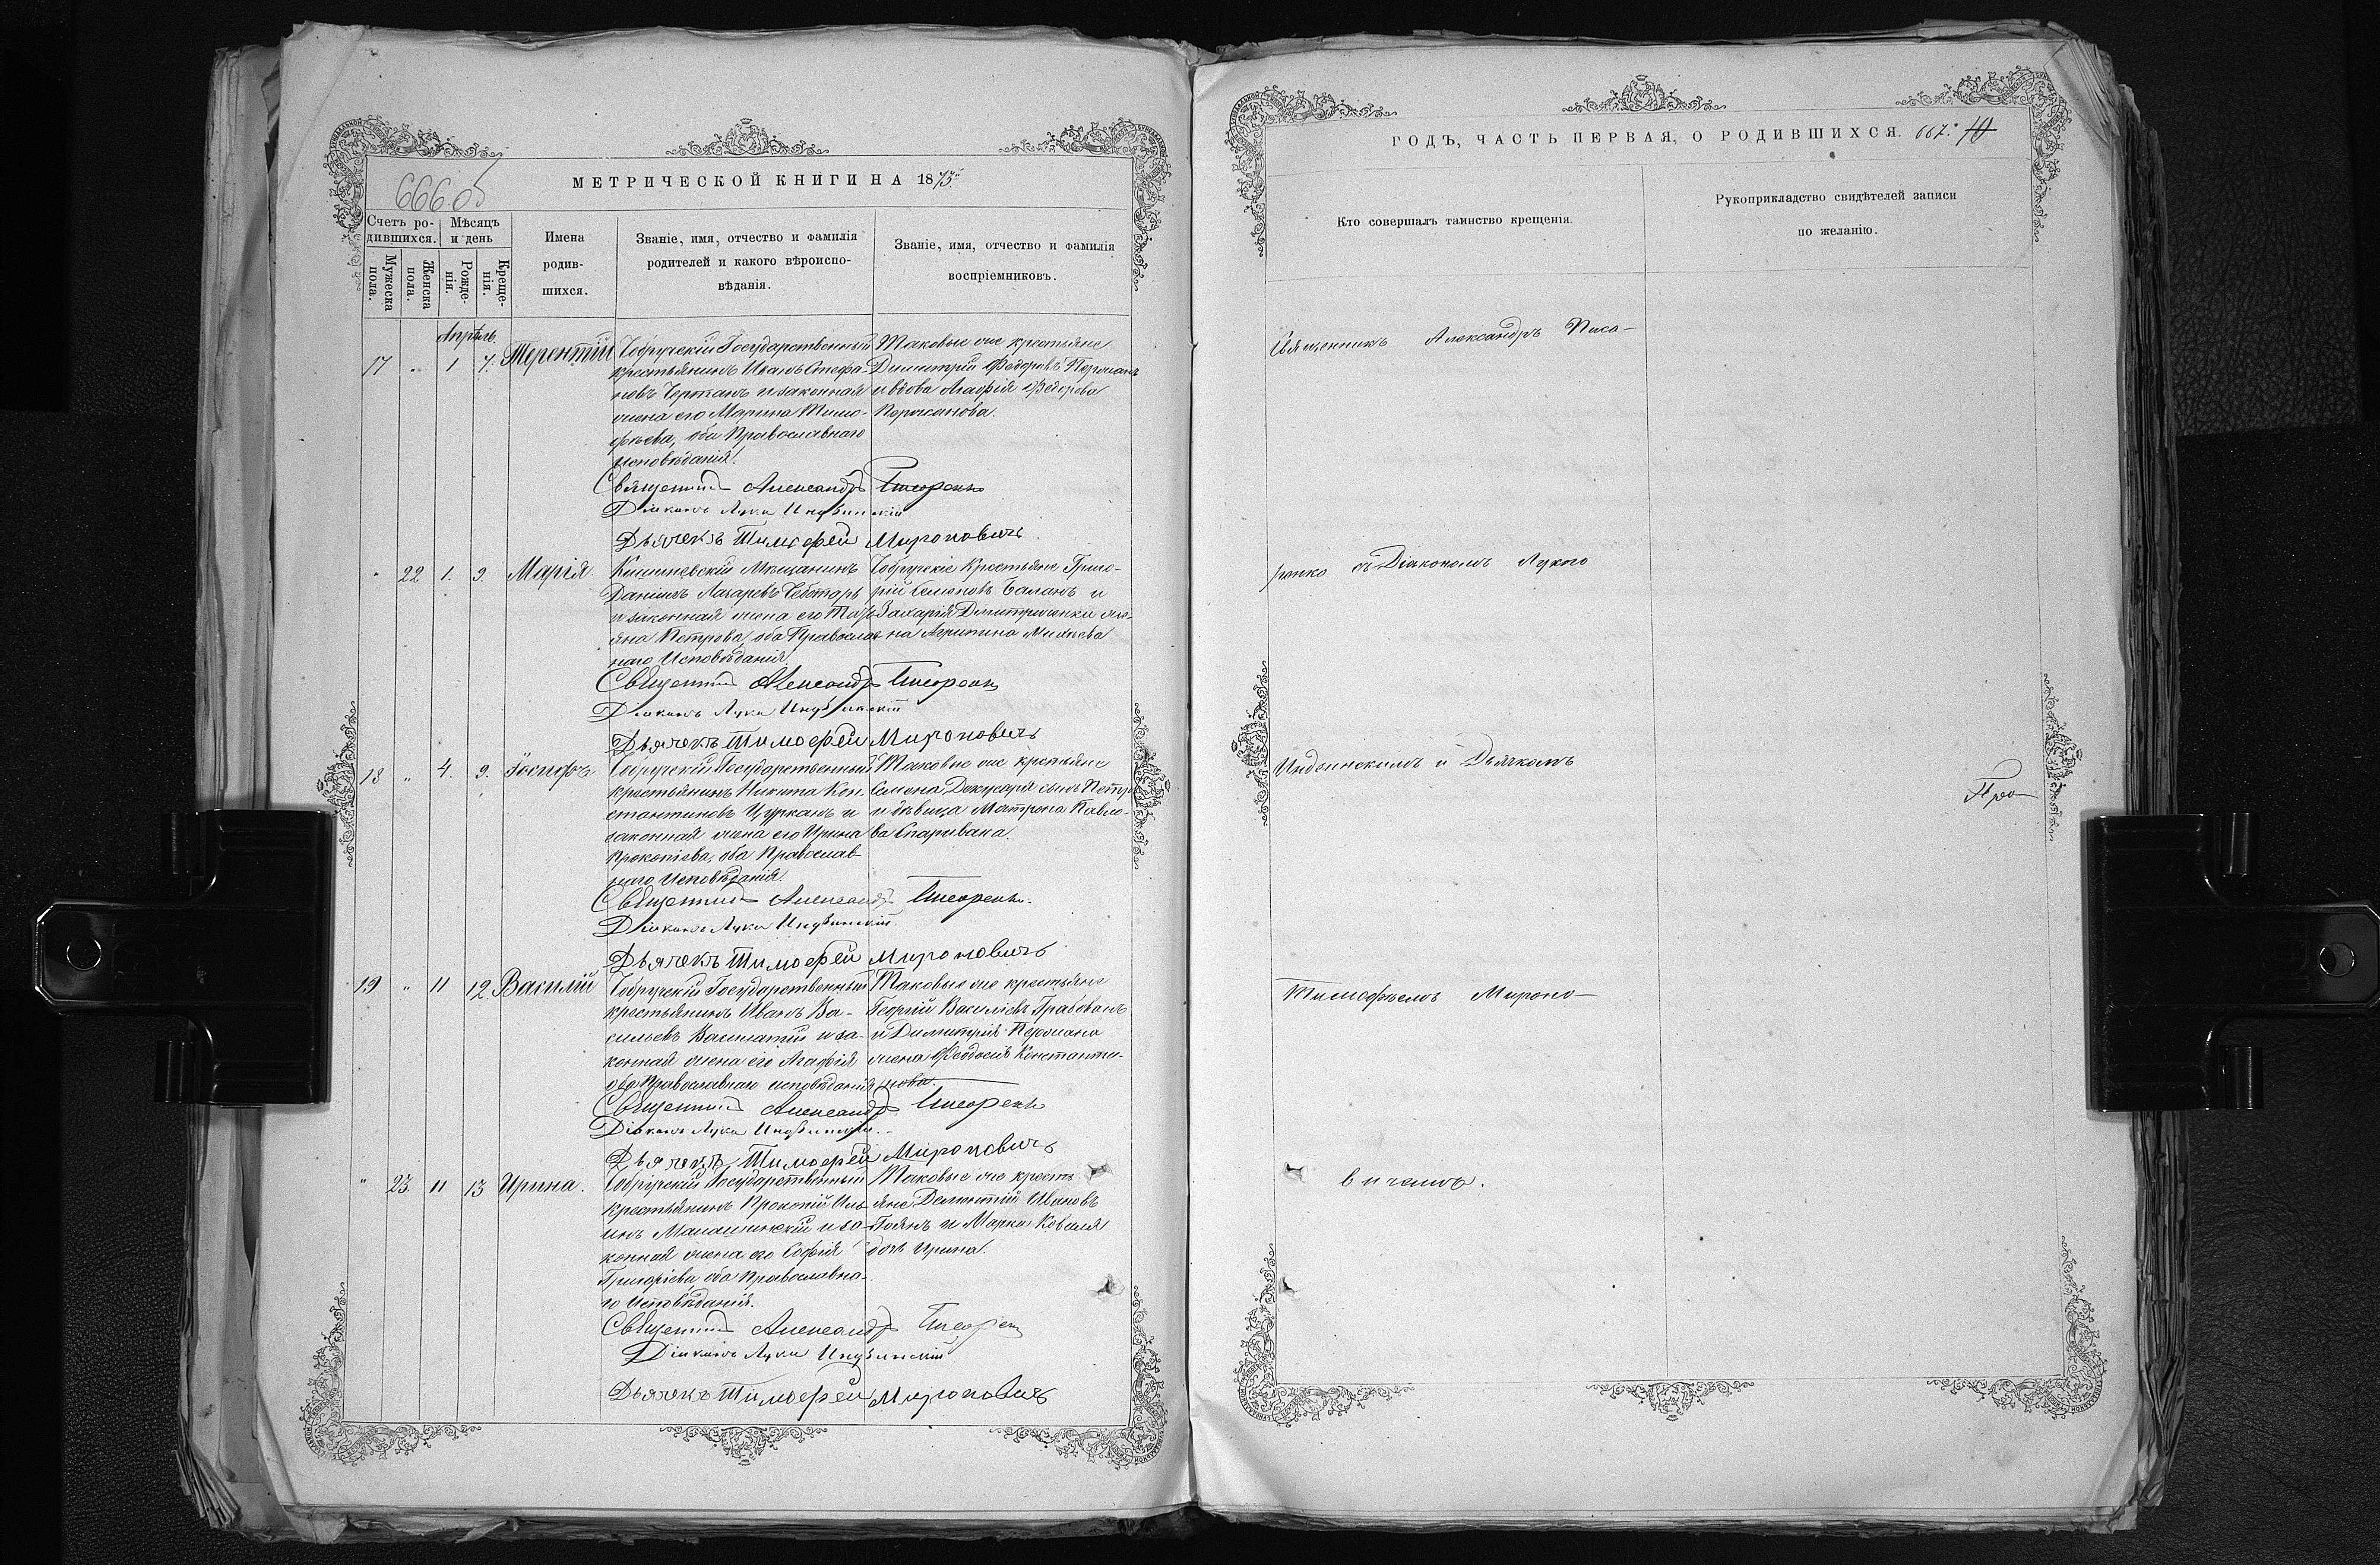 МЕТРИЧЕСКОЙ КНИГИ НА 1873
666 об
Счетъ ро-
дившихся.
Мужеска
пола.
Женска
пола.
Мѣсяцъ
и день
Рожде-
нія.
Креще-
нія.
Имена
родив-
шихся.
Званіе, имя, отчество и фамилія
родителей и какого вѣроиспо-
вѣданія.
Званіе, имя, отчество и фамилія
воспріемниковъ.
Апрѣль
17 " 1 7. Терентій
Чобручскій Государственный
крестьянинъ Иванъ Стефа-
новъ Чертанъ и законная
жена его Марина Тимо-
фѣева, оба Православнаго
исповѣданія.
Таковые же крестьяне
Димитрій Федоровъ
и вдова Агафія Федорова
Священникъ Александръ Писаренко
Діаконъ Лука Индзинскій
Дьячекъ Тимофей Мироновичъ
" 22 1. 9. Марія.
Кишиневскій Мѣщанинъ
Даніилъ Лазаревъ Чеботарь
и законная жена его Тать-
яна Петрова, оба Православ-
наго Исповѣданія
Чобручскіе Крестьяне Григо-
рій Семеновъ Баланъ и
Захарія Дмитриченки же-
на Агрипина
Священникъ Александръ Писаренко
Діаконъ Лука Индзинскій
Дьячекъ Тимофей Мироновичъ
18 " 4. 9. Іосифъ.
Чобручскій Государственный
крестьянинъ Никита Кон-
стантиновъ Цурканъ и
законная жена его Ирина
Прокопіева, оба Православ-
наго Исповѣданія.
Таковые же крестьяне
Семена сынъ Петръ
и дѣвица Матрона Павло-
ва
Священникъ Александръ Писаренко.
Діаконъ Лука Индзинскій
Дьячекъ Тимофей Мироновичъ
19 " 11 12. Василій
Чобручскій Государственный
крестьянинъ Иванъ Ва-
сильевъ и за-
конная жена его Агафія
оба Православнаго исповѣданія
Таковые же крестьяне
Георгій Василіевъ
и Димитрія
жена Феодосія Константи-
нова.
Священникъ Александръ Писаренко
Діаконъ Лука Индзинскій.
Дьячекъ Тимофей Мироновичъ
" 23. 11 13 Ирина.
Чобручскій Государственный
крестьянинъ Прокопій Иль-
инъ и за-
конная жена его Софія
Григоріева, оба православна-
го Исповѣданія.
Таковые же кресть-
яне Дементій Ивановъ
Поянъ и Марка Коваля
дочь Ирина.
Священникъ Александръ Писаренко
Діаконъ Лука Индзинскій
Дьячекъ Тимофей Мироновичъ
ГОДЪ, ЧАСТЬ ПЕРВАЯ, О РОДИВШИХСЯ. 667.
Кто совершалъ таинство крещенія.
Рукоприкладство свидѣтелей записи
по желанію.
Священникъ Александръ Писа-
ренко съ Діакономъ Лукою
Индзинскимъ и Дьячкомъ
Про-
Тимофѣемъ Мироно-
вичемъ.